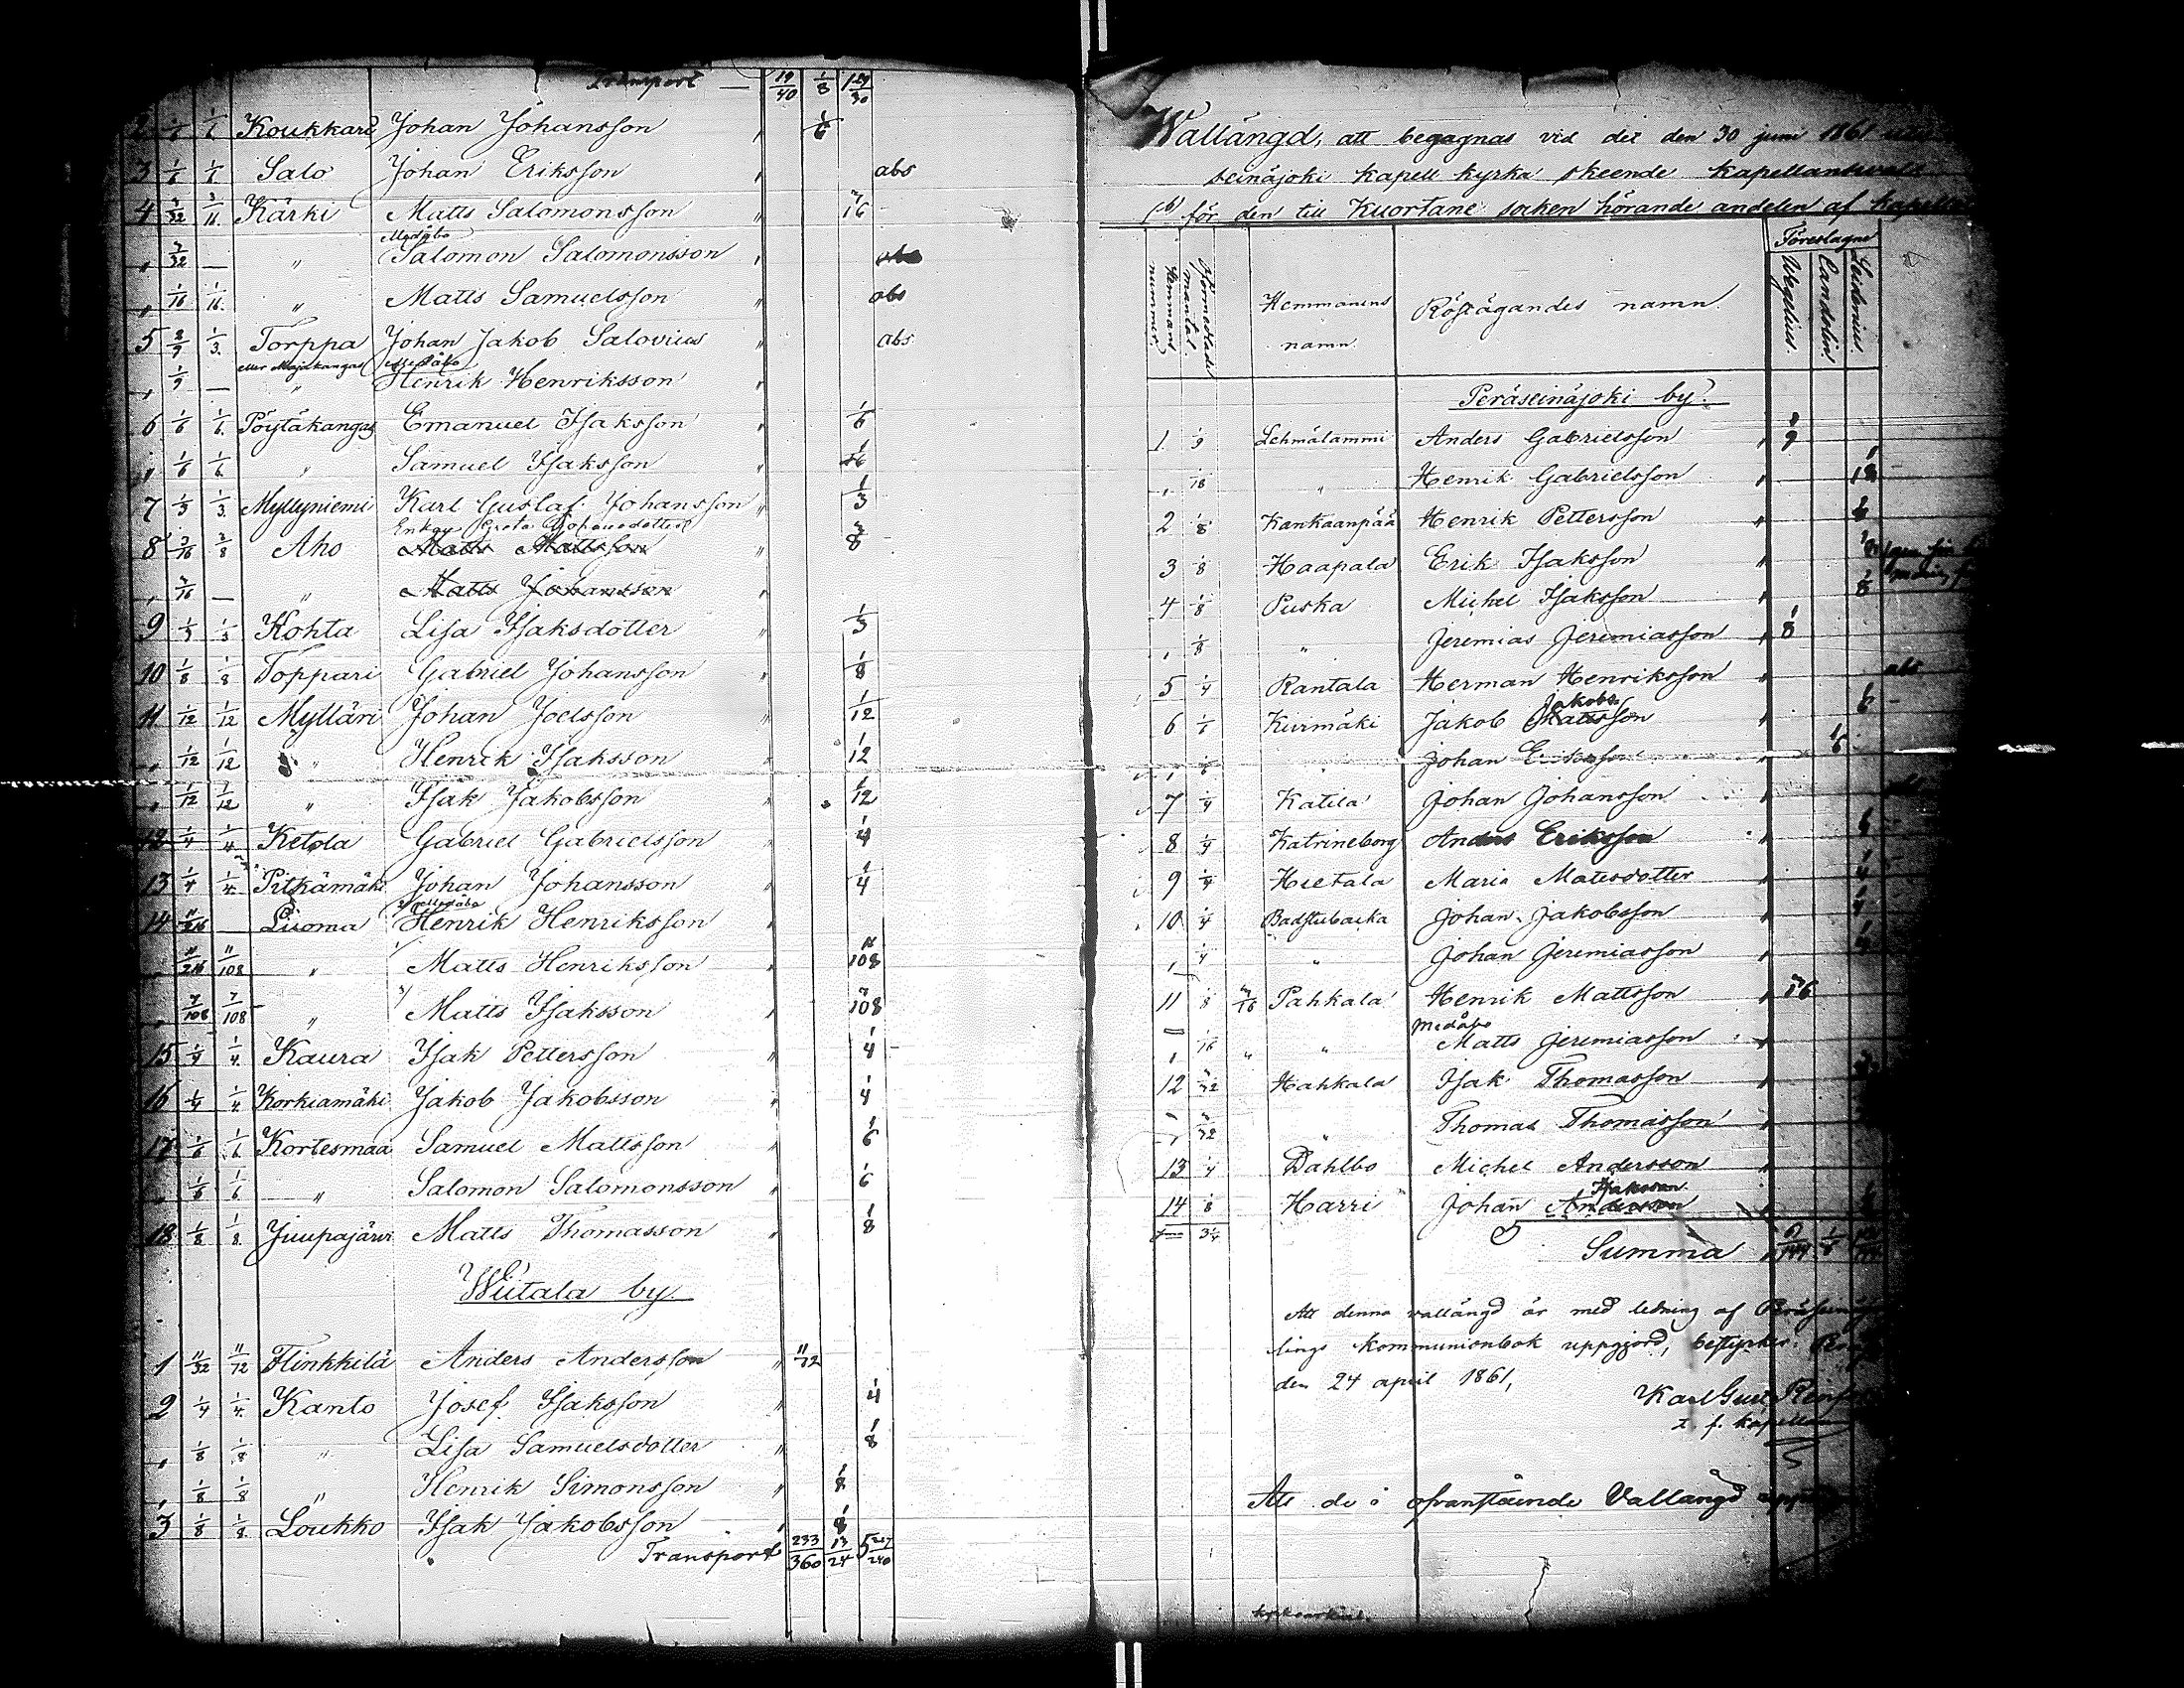 Transport — 19/40 1/8 1 29/30
2 1/6 1/6 Koukkari Johan Johansson " 1/6
3 1/6 1/6 Salo Johan Eriksson " abs
4 3/32 3/16 Kärki Matts Salomonsson " 3/16
Medåbo
" 3/32 — " Salomon Salomonsson "
" 1/16 1/16 " Matts Samuelsson " abs
5 2/9 1/3 Torppa Johan Jakob Salovius " abs
eller Majakangas Medåbo
" 1/9 — " Henrik Henriksson "
6 1/6 1/6 Pöytäkangas Emanuel Isaksson " 1/6
" 1/6 1/6 " Samuel Isaksson " 1/6
7 1/3 1/3 Myllyniemi Karl Gustaf Johansson " 1/3
Enkan Greta Johansdotter
8 3/16 3/8 Aho Matts Mattsson " 3/8
" 3/16 — " Matts Johansson
9 1/3 1/3 Kohta Lisa Isaksdotter " 1/3
10 1/8 1/8 Toppari Gabriel Johansson " 1/8
11 1/12 1/12 Mylläri Johan Joelsson " 1/12
" 1/12 1/12 " Henrik Isaksson " 1/12
" 1/12 1/12 " Isak Jakobsson " 1/12
12 1/4 1/4 Ketola Gabriel Gabrielsson " 1/4
13 1/4 1/4 Pitkämäki Johan Johansson " 1/4
Medåbo
14 11/216 — Luoma Henrik Henriksson "
" 11/216 11/108 " Matts Henriksson " 11/108
" 7/108 7/108 " Matts Isaksson " 7/108
15 1/4 1/4 Kaura Isak Pettersson " 1/4
16 1/4 1/4 Korkiamäki Jakob Jakobsson " 1/4
17 1/6 1/6 Kortesmaa Samuel Mattsson " 1/6
" 1/6 1/6 " Salomon Salomonsson " 1/6
18 1/8 1/8 Juupajärvi Matts Thomasson " 1/8
Wiitala by.
1 11/32 11/72 Flinkkilä Anders Andersson " 11/72
2 1/4 1/4 Kanto Josef Isaksson " 1/4
" 1/8 1/8 " Lisa Samuelsdotter " 1/8
" 1/8 1/8 " Henrik Simonsson " 1/8
3 1/8 1/8 Loukko Isak Jakobsson " 1/8
Transport 233/360 13/24 5 227/240
Wallängd, att begagnas vid det den 30 juni 1861
seinäjoki kapell kyrka skeende
för den till Kuortane socken hörande andelen af
Föreslagne
Hemmans nummer. Förmedlade mantal. Hemmanens namn. Röstägandes namn. Wegelius. Candelin.
Peräseinäjoki by.
1. 1/9 Lehmälammi Anders Gabrielsson " 1/9
" 1/18 " Henrik Gabrielsson " 1/18
2 1/8 Kankaanpää Henrik Pettersson "
3 1/8 Haapala Erik Isaksson "
4 1/8 Puska Michel Isaksson " 1/8
" 1/8 " Jeremias Jeremiasson " 1/8
5 1/4 Rantala Herman Henriksson " abs
Jakobs
6 1/6 Kurmäki Jakob Mattsson " 1/6
" 1/6 " Johan Eriksson " 1/6
7 1/4 Katila Johan Johansson "
8 1/4 Katrineborg Anders Eriksson "
9 1/4 Hietala Maria Matesdotter " 1/4
10 1/4 Badstubacka Johan Jakobsson " 1/4
" 1/4 " Johan Jeremiasson " 1/4
11 1/8 3/16 Pahkala Henrik Mattsson " 3/16
Medåbo
" 1/16 " " Matts Jeremiasson "
12 3/32 Hahkala Isak Thomasson "
" 3/32 " Thomas Thomasson "
13 1/4 Dahlbo Michel Andersson "
Isaksson
14 1/8 Harri Johan Andersson "
3 1/4 Summa
Att denna vallängd är med ledning af
lings kommunionbok uppgjord, bestyrker.
den 24 april 1861,
Karl Gust.
t. f. kapellan
Att de i ofvanstående Vallängd